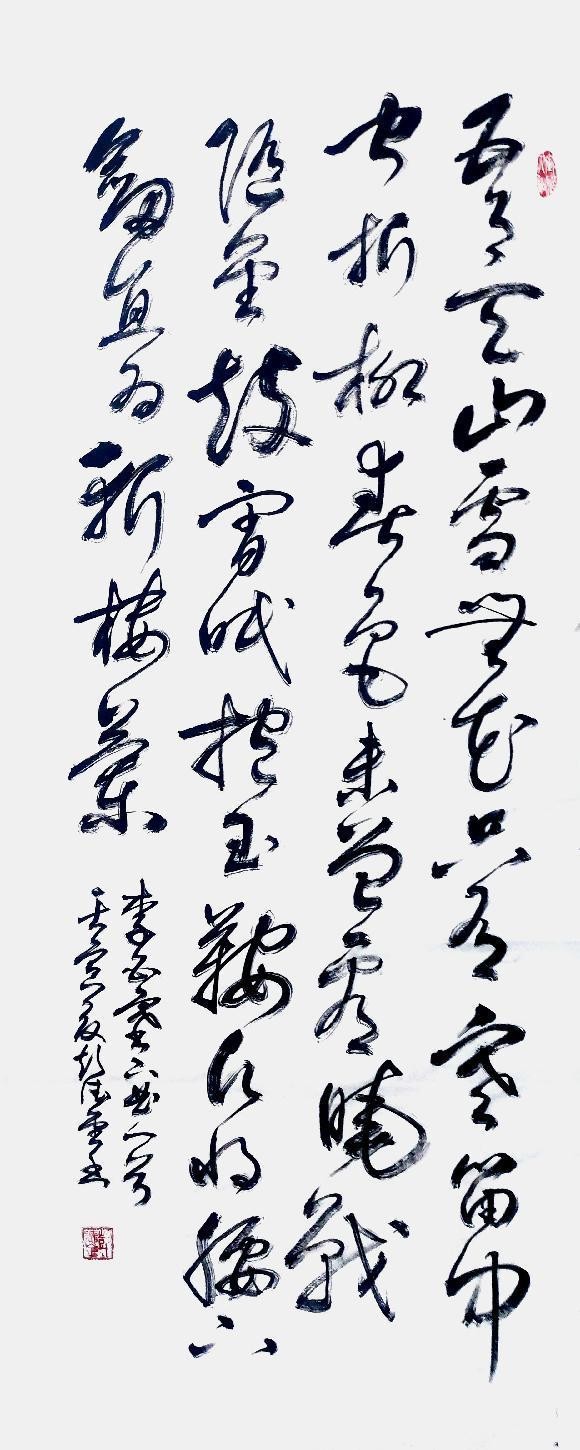 五月天山雪無花只有寒笛中
聞折柳春色未曾看曉戰
隨金鼓宵眠抱玉鞍願将腰下
劍直為斬樓蘭
李白塞下曲一首
壬寅夏書